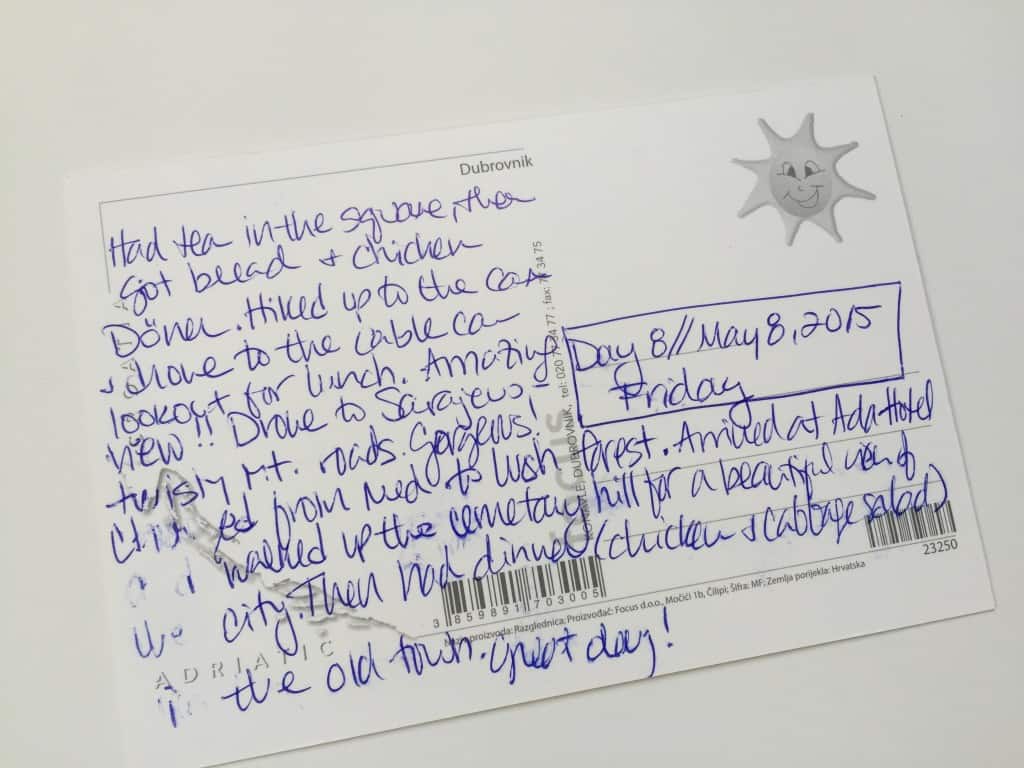 Dubrovnik
Had tea in the square, then
got bread + chicken
Döner. Hiked up to the car
+ drove to the cable car
lookout for lunch. Amazing
view!! Drove to Sarajevo
twisty Mt. roads. Gorgeous!
from Med to lush forest. Arrived at Ada Hotel
walked up the cemetary hill for a beautiful view of
the city. Then had dinner (chicken + cabbage salad)
in the old town. Great day!
Day 8 // May 8, 2015
Friday
DUBROVNIK, tel: 020 77 34 77 ; fax: 77 34 75
3 859891 703005
23250
Naziv proizvoda: Razglednica; Proizvođač: Focus d.o.o., Močići 1b, Čilipi; Šifra: MF; Zemlja porijekla: Hrvatska
ADRIATIC